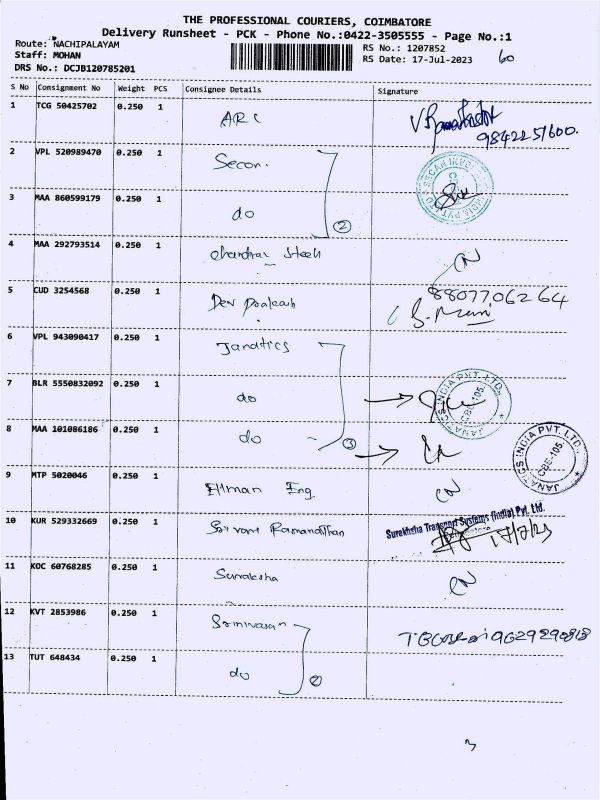 THE PROFESSIONAL COURIERS, COIMBATORE
Delivery Runsheet - PCK - Phone No.:0422-3505555 - Page No.:1
Route: NACHIPALAYAM
Staff: MOHAN
DRS No.: DCJB120785201
RS No.: 1207852
RS Date: 17-Jul-2023
60
S No Consignment No Weight PCS Consignee Details Signature
1 TCG 50425702 0.250 1 ARC
9842251600.
2 VPL 520989470 0.250 1 Secon.
3 MAA 860599179 0.250 1 do
2
4 MAA 292793514 0.250 1 Chandran Steels
5 CUD 3254568 0.250 1 Dev Prakash
8807706264
S. Muni
6 VPL 943090417 0.250 1 Janatics
7 BLR 5550832092 0.250 1 do
JANATICS INDIA PVT. LTD. CBE-105
8 MAA 101086186 0.250 1 do
3
JANATICS INDIA PVT. LTD. CBE-105
9 MTP 5020046 0.250 1 Himan Eng.
10 KUR 529332669 0.250 1
Surakhsha Transport Systems (India) Pvt. Ltd.
17/7/23
11 KOC 60768285 0.250 1 Suraksha
12 KVT 2853986 0.250 1 Srinivasan
13 TUT 648434 0.250 1 do
2